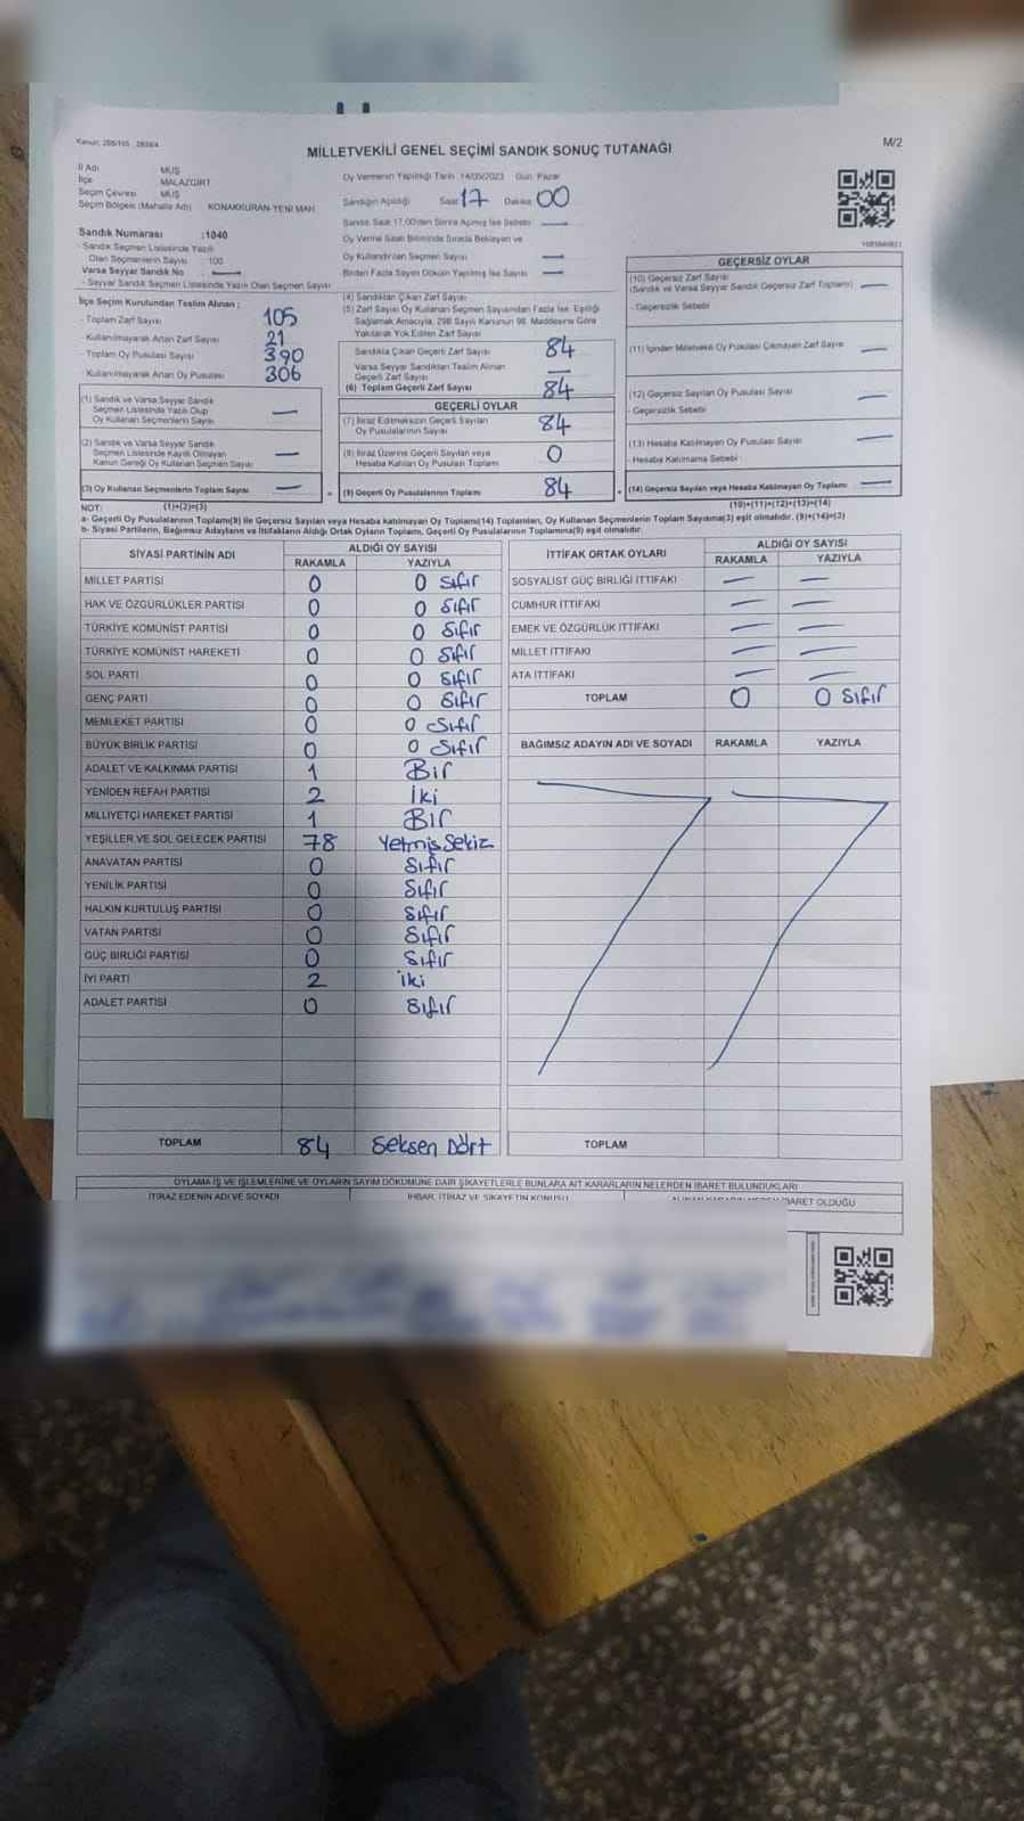 MİLLETVEKİLİ GENEL SEÇİMİ SANDIK SONUÇ TUTANAĞI
M/2
İl Adı MUŞ
İlçe MALAZGİRT
Seçim Çevresi MUŞ
Seçim Bölgesi (Mahalle Adı) KONAKKURAN-YENİ MAH
Sandık Numarası :1040
Sandık Seçmen Listesinde Yazılı
Olan Seçmenlerin Sayısı 100
Varsa Seyyar Sandık No —
Seyyar Sandık Seçmen Listesinde Yazılı Olan Seçmen Sayısı
Oy Vermenin Yapıldığı Tarih 14/05/2023 Gün Pazar
Sandığın Açıldığı Saat 17 Dakika 00
Sandık Saat 17.00'den Sonra Açılmış İse Sebebi —
Oy Verme Saati Bitiminde Sırada Bekleyen ve
Oy Kullandırılan Seçmen Sayısı —
Birden Fazla Sayım Döküm Yapılmış İse Sayısı —
İlçe Seçim Kurulundan Teslim Alınan :
Toplam Zarf Sayısı 105
Kullanılmayarak Artan Zarf Sayısı 21
Toplam Oy Pusulası Sayısı 390
Kullanılmayarak Artan Oy Pusulası 306
(1) Sandık ve Varsa Seyyar Sandık
Seçmen Listesinde Yazılı Olup
Oy Kullanan Seçmenlerin Sayısı —
(2) Sandık ve Varsa Seyyar Sandık
Seçmen Listesinde Kayıtlı Olmayan
Kanun Gereği Oy Kullanan Seçmen Sayısı —
(3) Oy Kullanan Seçmenlerin Toplam Sayısı —
(4) Sandıktan Çıkan Zarf Sayısı
(5) Zarf Sayısı Oy Kullanan Seçmen Sayısından Fazla İse, Eşitliği
Sağlamak Amacıyla, 298 Sayılı Kanunun 98. Maddesine Göre
Yakılarak Yok Edilen Zarf Sayısı
Sandıkta Çıkan Geçerli Zarf Sayısı 84
Varsa Seyyar Sandıktan Teslim Alınan
Geçerli Zarf Sayısı —
(6) Toplam Geçerli Zarf Sayısı 84
GEÇERLİ OYLAR
(7) İtiraz Edilmeksizin Geçerli Sayılan
Oy Pusulalarının Sayısı 84
(8) İtiraz Üzerine Geçerli Sayılan veya
Hesaba Katılan Oy Pusulası Toplamı 0
(9) Geçerli Oy Pusulalarının Toplamı 84
GEÇERSİZ OYLAR
(10) Geçersiz Zarf Sayısı
(Sandık ve Varsa Seyyar Sandık Geçersiz Zarf Toplamı) —
Geçersizlik Sebebi
(11) İçinden Milletvekili Oy Pusulası Çıkmayan Zarf Sayısı —
(12) Geçersiz Sayılan Oy Pusulası Sayısı —
Geçersizlik Sebebi
(13) Hesaba Katılmayan Oy Pusulası Sayısı —
Hesaba Katılmama Sebebi
(14) Geçersiz Sayılan veya Hesaba Katılmayan Oy Toplamı —
NOT: (1)+(2)=(3) (10)+(11)+(12)+(13)=(14)
a- Geçerli Oy Pusulalarının Toplamı(9) ile Geçersiz Sayılan veya Hesaba katılmayan Oy Toplamı(14) Toplamları, Oy Kullanan Seçmenlerin Toplam Sayısına(3) eşit olmalıdır. (9)+(14)=(3)
b- Siyasi Partilerin, Bağımsız Adayların ve İttifakların Aldığı Ortak Oyların Toplamı, Geçerli Oy Pusulalarının Toplamına(9) eşit olmalıdır.
SİYASİ PARTİNİN ADI ALDIĞI OY SAYISI
RAKAMLA YAZIYLA
MİLLET PARTİSİ 0 0 Sıfır
HAK VE ÖZGÜRLÜKLER PARTİSİ 0 0 Sıfır
TÜRKİYE KOMÜNİST PARTİSİ 0 0 Sıfır
TÜRKİYE KOMÜNİST HAREKETİ 0 0 Sıfır
SOL PARTİ 0 0 Sıfır
GENÇ PARTİ 0 0 Sıfır
MEMLEKET PARTİSİ 0 0 Sıfır
BÜYÜK BİRLİK PARTİSİ 0 0 Sıfır
ADALET VE KALKINMA PARTİSİ 1 Bir
YENİDEN REFAH PARTİSİ 2 İki
MİLLİYETÇİ HAREKET PARTİSİ 1 Bir
YEŞİLLER VE SOL GELECEK PARTİSİ 78 Yetmiş Sekiz
ANAVATAN PARTİSİ 0 Sıfır
YENİLİK PARTİSİ 0 Sıfır
HALKIN KURTULUŞ PARTİSİ 0 Sıfır
VATAN PARTİSİ 0 Sıfır
GÜÇ BİRLİĞİ PARTİSİ 0 Sıfır
İYİ PARTİ 2 iki
ADALET PARTİSİ 0 Sıfır
TOPLAM 84 Seksen Dört
İTTİFAK ORTAK OYLARI ALDIĞI OY SAYISI
RAKAMLA YAZIYLA
SOSYALİST GÜÇ BİRLİĞİ İTTİFAKI — —
CUMHUR İTTİFAKI — —
EMEK VE ÖZGÜRLÜK İTTİFAKI — —
MİLLET İTTİFAKI — —
ATA İTTİFAKI — —
TOPLAM 0 0 Sıfır
BAĞIMSIZ ADAYIN ADI VE SOYADI RAKAMLA YAZIYLA
TOPLAM
OYLAMA İŞ VE İŞLEMLERİNE VE OYLARIN SAYIM DÖKÜMÜNE DAİR ŞİKAYETLERLE BUNLARA AİT KARARLARIN NELERDEN İBARET BULUNDUKLARI
İTİRAZ EDENİN ADI VE SOYADI İHBAR, İTİRAZ VE ŞİKAYETİN KONUSU İBARET OLDUĞU